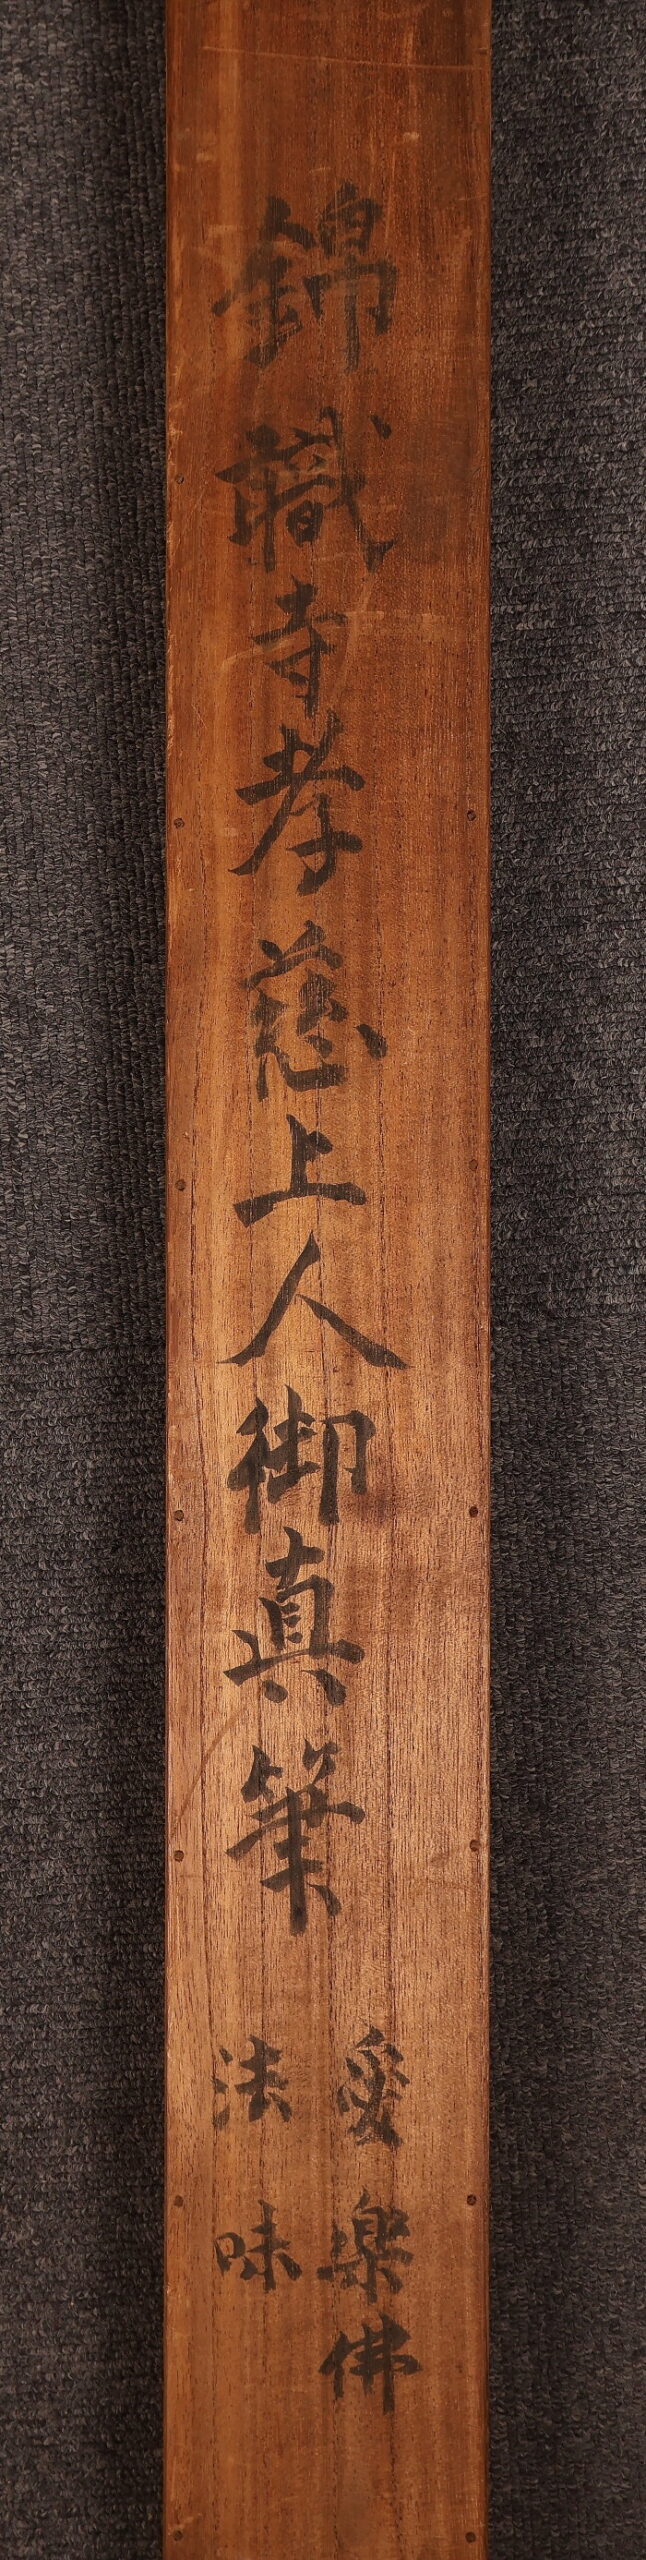 錦職寺孝慈上人御真筆
愛楽佛
法味